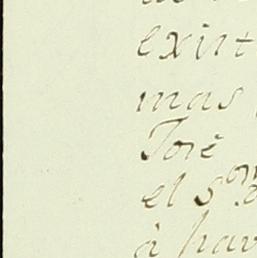 exist
mas
José
el S.
à hav